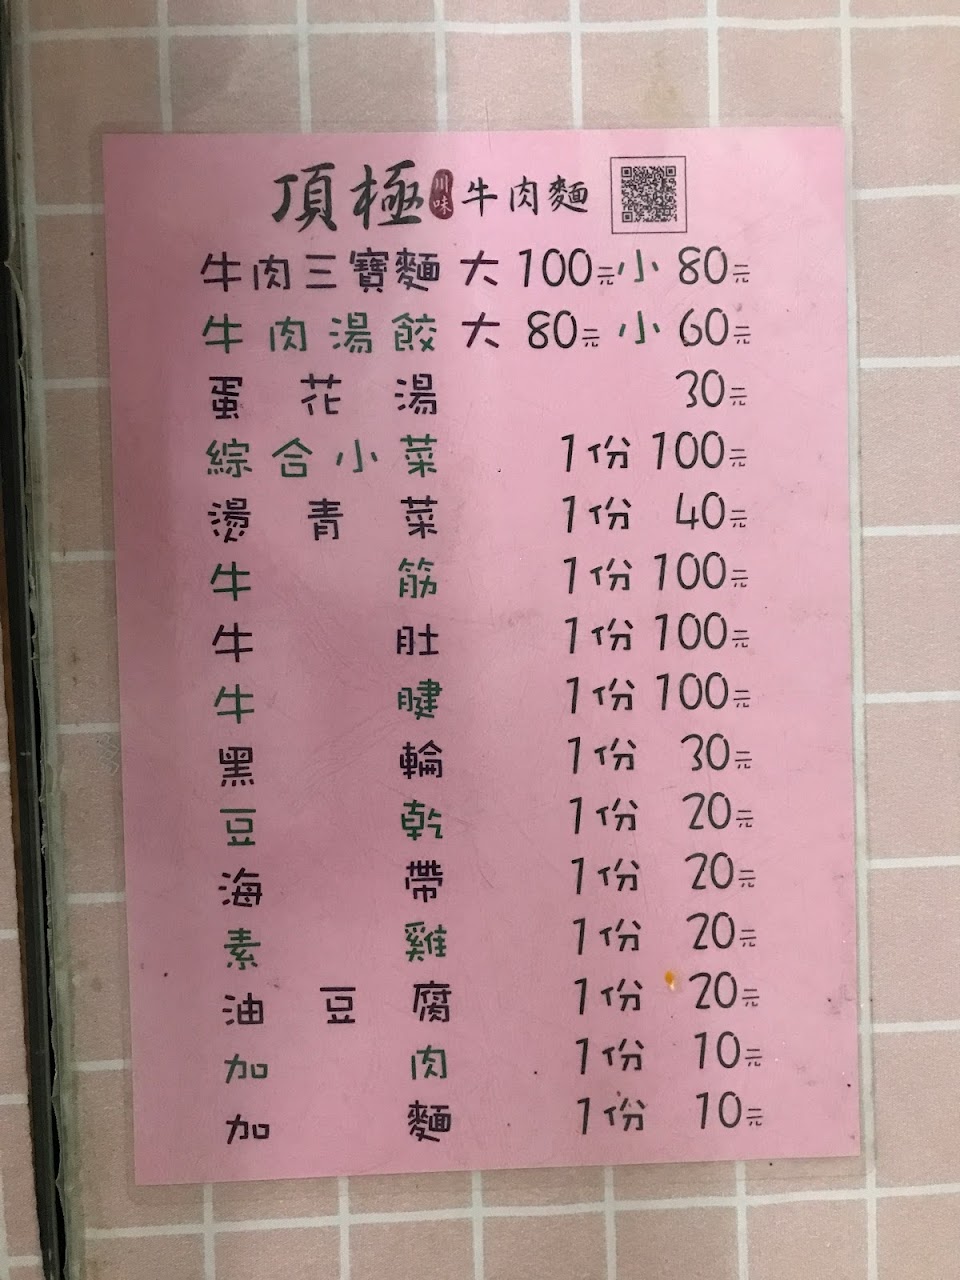 頂極 川味 牛肉麵
牛肉三寶麵 大 100元 小 80元
牛肉湯餃 大 80元 小 60元
蛋花湯 30元
綜合小菜 1份 100元
燙青菜 1份 40元
牛筋 1份 100元
牛肚 1份 100元
牛腱 1份 100元
黑輪 1份 30元
豆乾 1份 20元
海帶 1份 20元
素雞 1份 20元
油豆腐 1份 20元
加肉 1份 10元
加麵 1份 10元